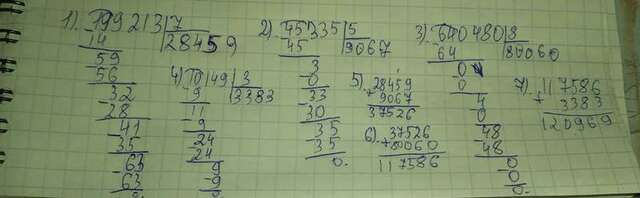 1) 199213|7
14 |28459
59
56
32
28
41
35
63
63
0
2) 45335|5
45 |9067
3
0
33
30
35
35
0.
3) 640480|8
64 |80060
0
0
4
0
48
48
0
0
0.
4) 10149|3
9 |3383
11
9
24
24
9
9
0
5) 28459
+ 9067
37526
6) 37526
+80060
117586
7) 117586
+ 3383
120969